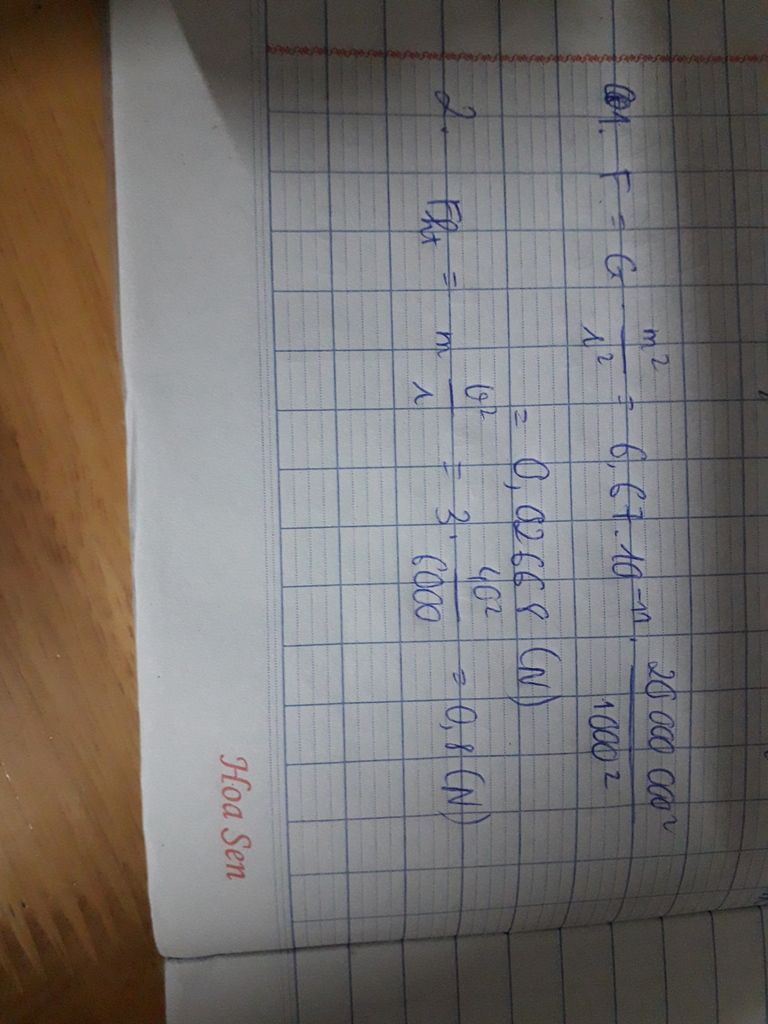 1. F = G . m² / r² = 6,67 . 10⁻¹¹ . 20 000 000² / 1000²
= 0,02668 (N)
2. Fht = m v² / r = 3 . 40² / 6000 = 0,8 (N)
Hoa Sen